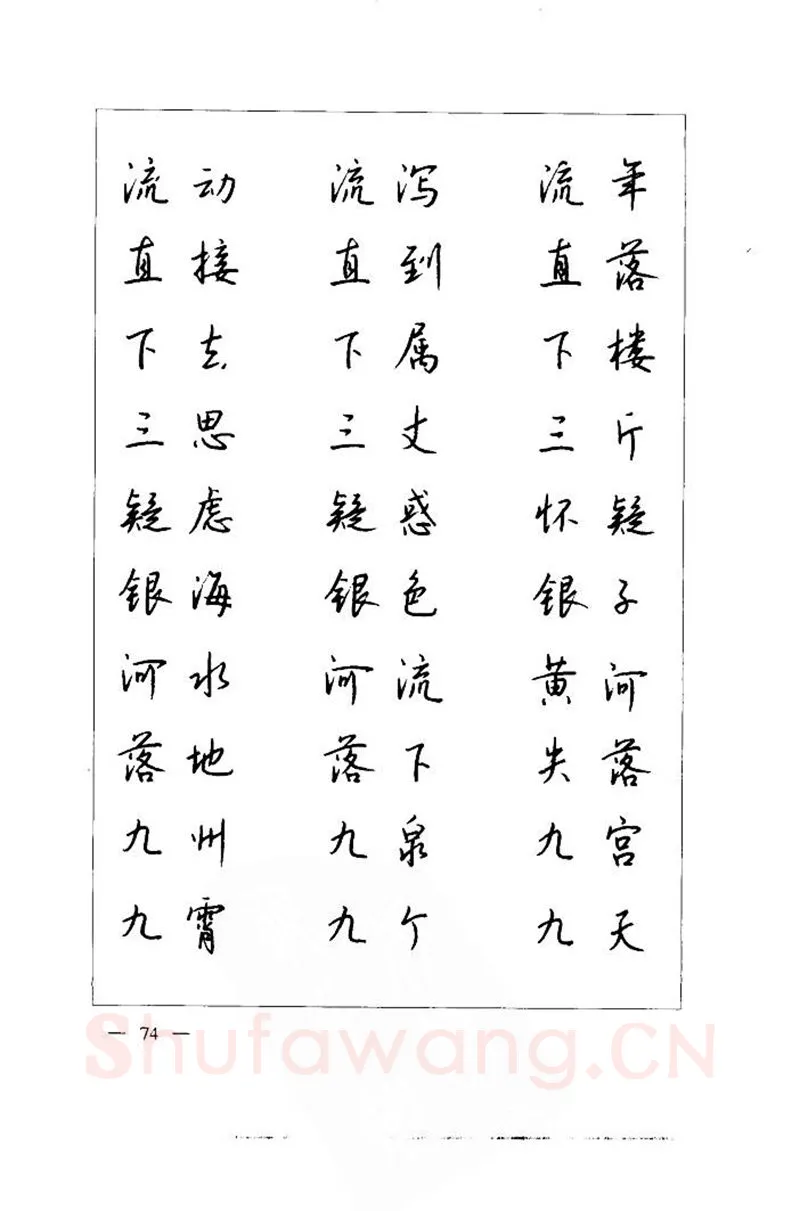 流动 流泻 流年
直接 直到 直落
下去 下属 下楼
三思 三丈 三斤
疑虑 疑惑 怀疑
银海 银色 银子
河水 河流 黄河
落地 落下 失落
九州 九泉 九宫
九霄 九个 九天
— 74 —
Shufawang.CN